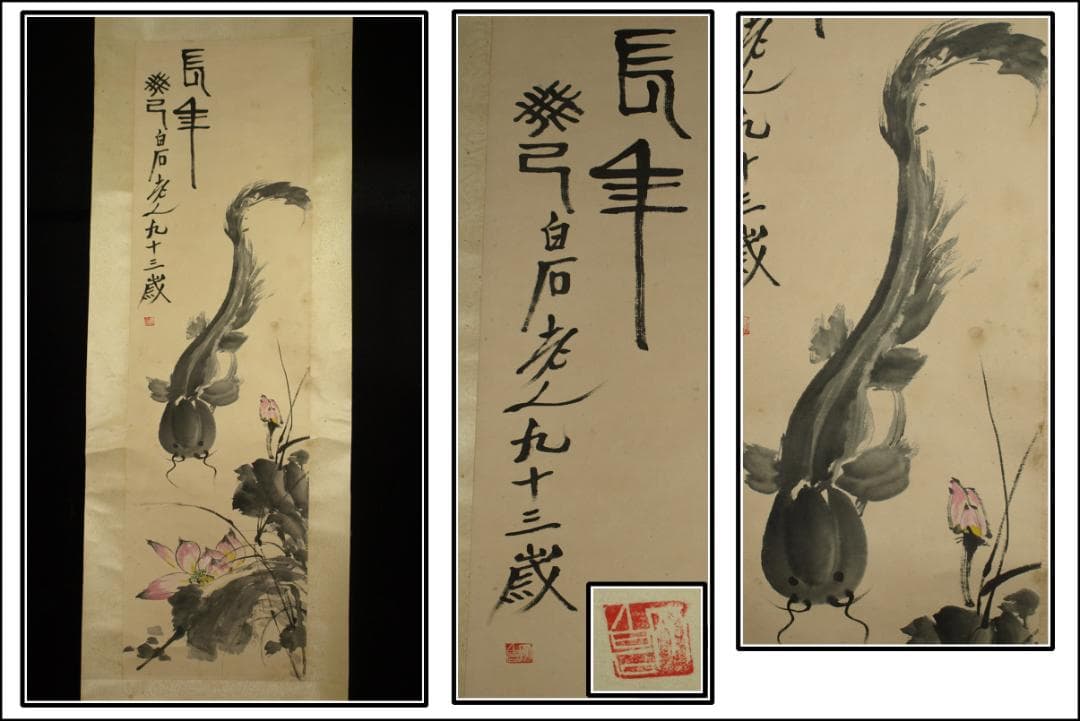 長年
癸巳白石老人九十三歲
長年
癸巳白石老人九十三歲
人九十三歲